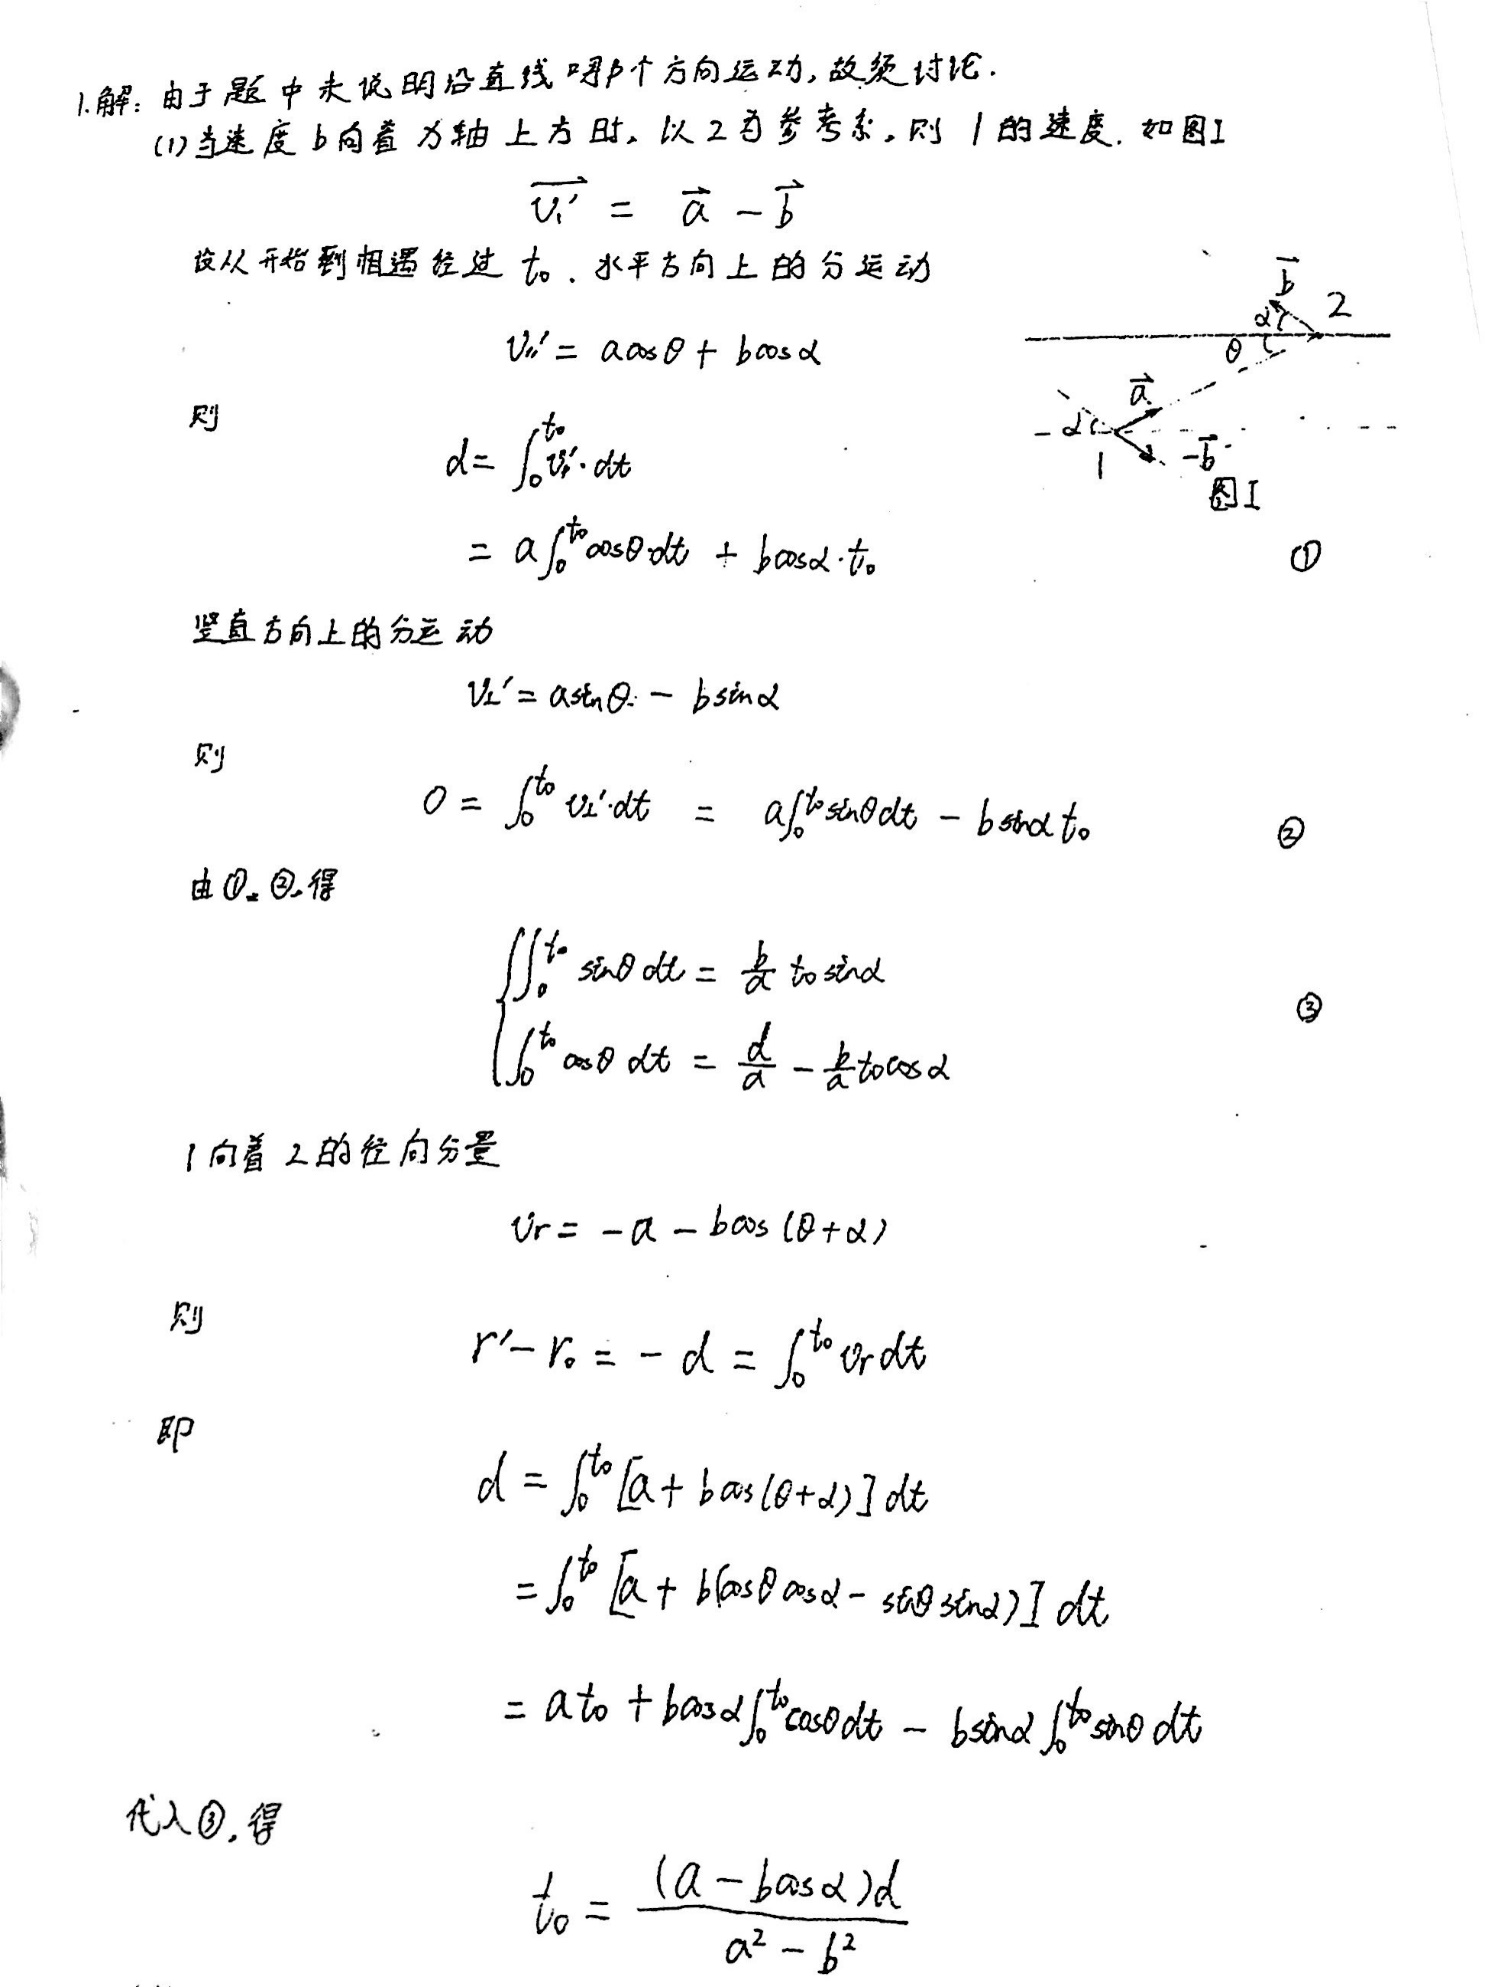 1.解：由于题中未说明沿直线哪个方向运动，故须讨论.
(1)当速度b向着力轴上方时，以2为参考系，则1的速度.如图I
v₁′ = a − b
设从开始到相遇经过 t₀. 水平方向上的分运动
b
2
α
v∥′ = acosθ + bcosα
θ
a
则
α
1
−b
d = ∫₀^t₀ v∥′·dt
图I
= a∫₀^t₀ cosθ·dt + bcosα·t₀ ①
竖直方向上的分运动
v⊥′ = asinθ − bsinα
则
0 = ∫₀^t₀ v⊥′·dt = a∫₀^t₀ sinθdt − bsinαt₀ ②
由①、②，得
∫₀^t₀ sinθdt = b/a t₀sinα
③
∫₀^t₀ cosθ dt = d/a − b/a t₀cosα
1向着2的径向分量
vr = −a − bcos(θ+α)
则
r′ − r₀ = −d = ∫₀^t₀ vrdt
即
d = ∫₀^t₀ [a + bcos(θ+α)]dt
= ∫₀^t₀ [a + b(cosθcosα − sinθsinα)]dt
= at₀ + bcosα∫₀^t₀ cosθdt − bsinα∫₀^t₀ sinθdt
代入③，得
t₀ = (a − bcosα)d / a² − b²